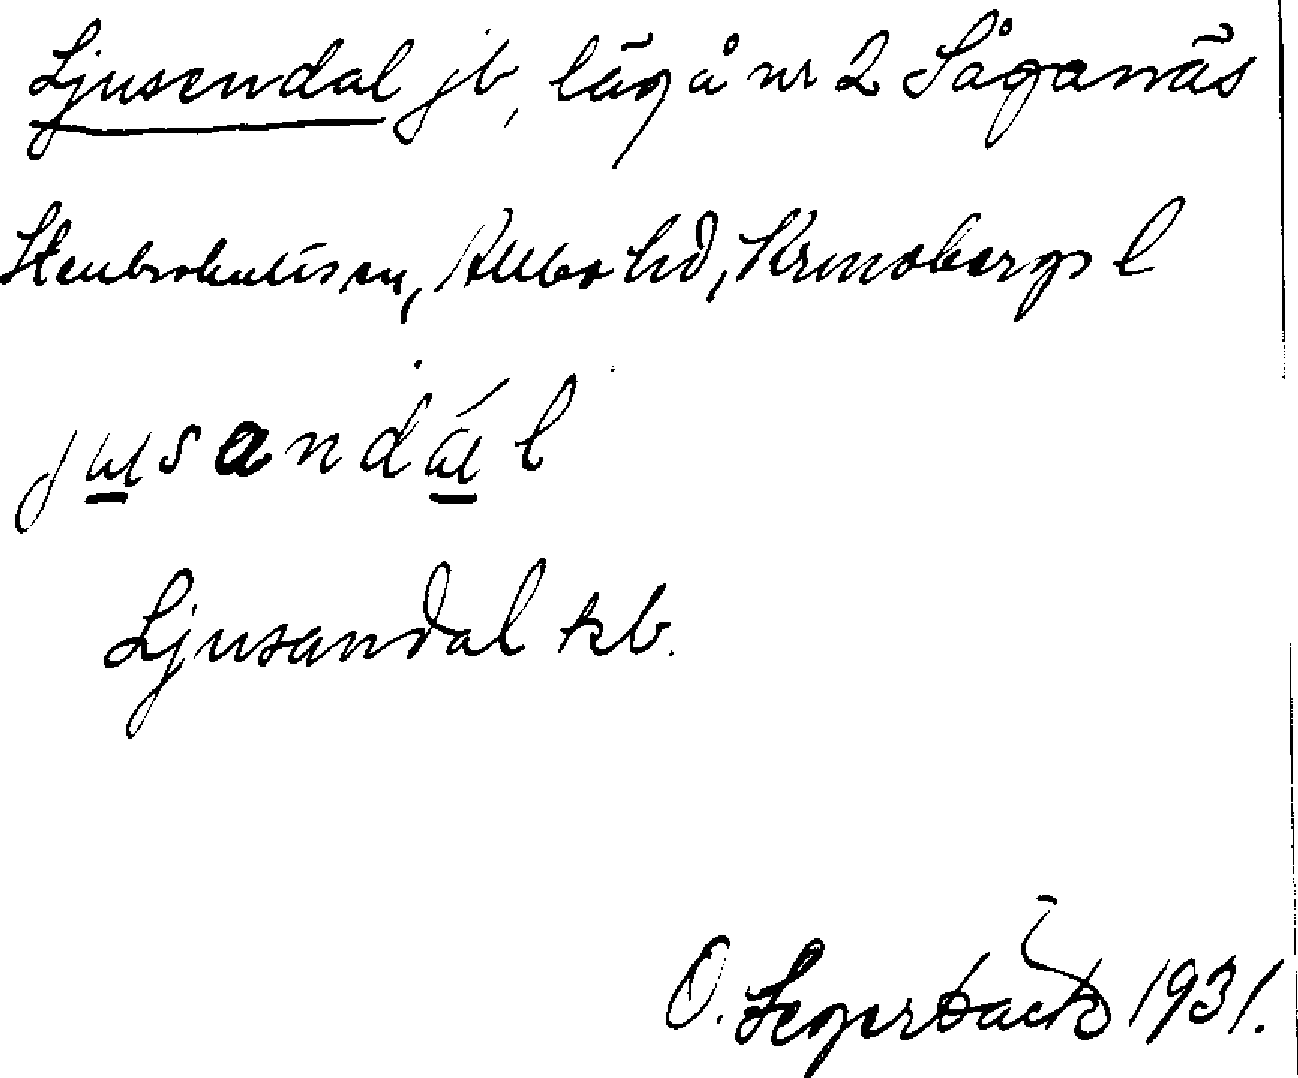 Ljusendal jb, läg å nr 2 Såganäs
Stenbrohults sn, Allbo hd, Kronobergs l
jusandál
Ljusandal kb.
O. Segerbäck 1931.